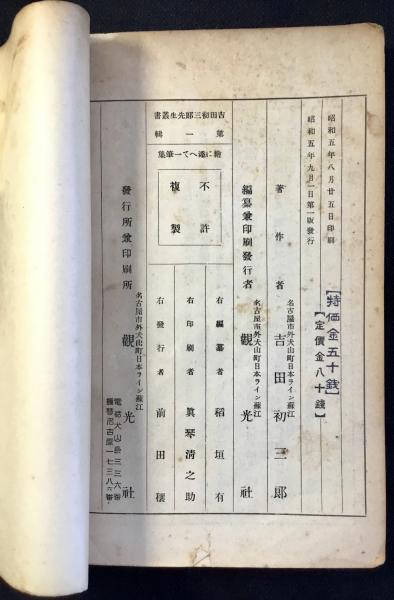 昭和五年八月廿五日印刷
昭和五年九月一日第一版發行
【特価金五十錢】
【定價金八十錢】
著作者
名古屋市外犬山町日本ライン蘇江
吉田初三郎
編纂兼印刷發行者
名古屋市外犬山町日本ライン蘇江
觀光社
吉田初三郎先生叢書
第一輯
繪に添へて一筆集
不許
複製
右編纂者 稻垣有
右印刷者 眞琴清之助
右發行者 前田穰
發行所兼印刷所
名古屋市外犬山町日本ライン蘇江
觀光社
電話犬山長三三六番
振替名古屋一七三八六番